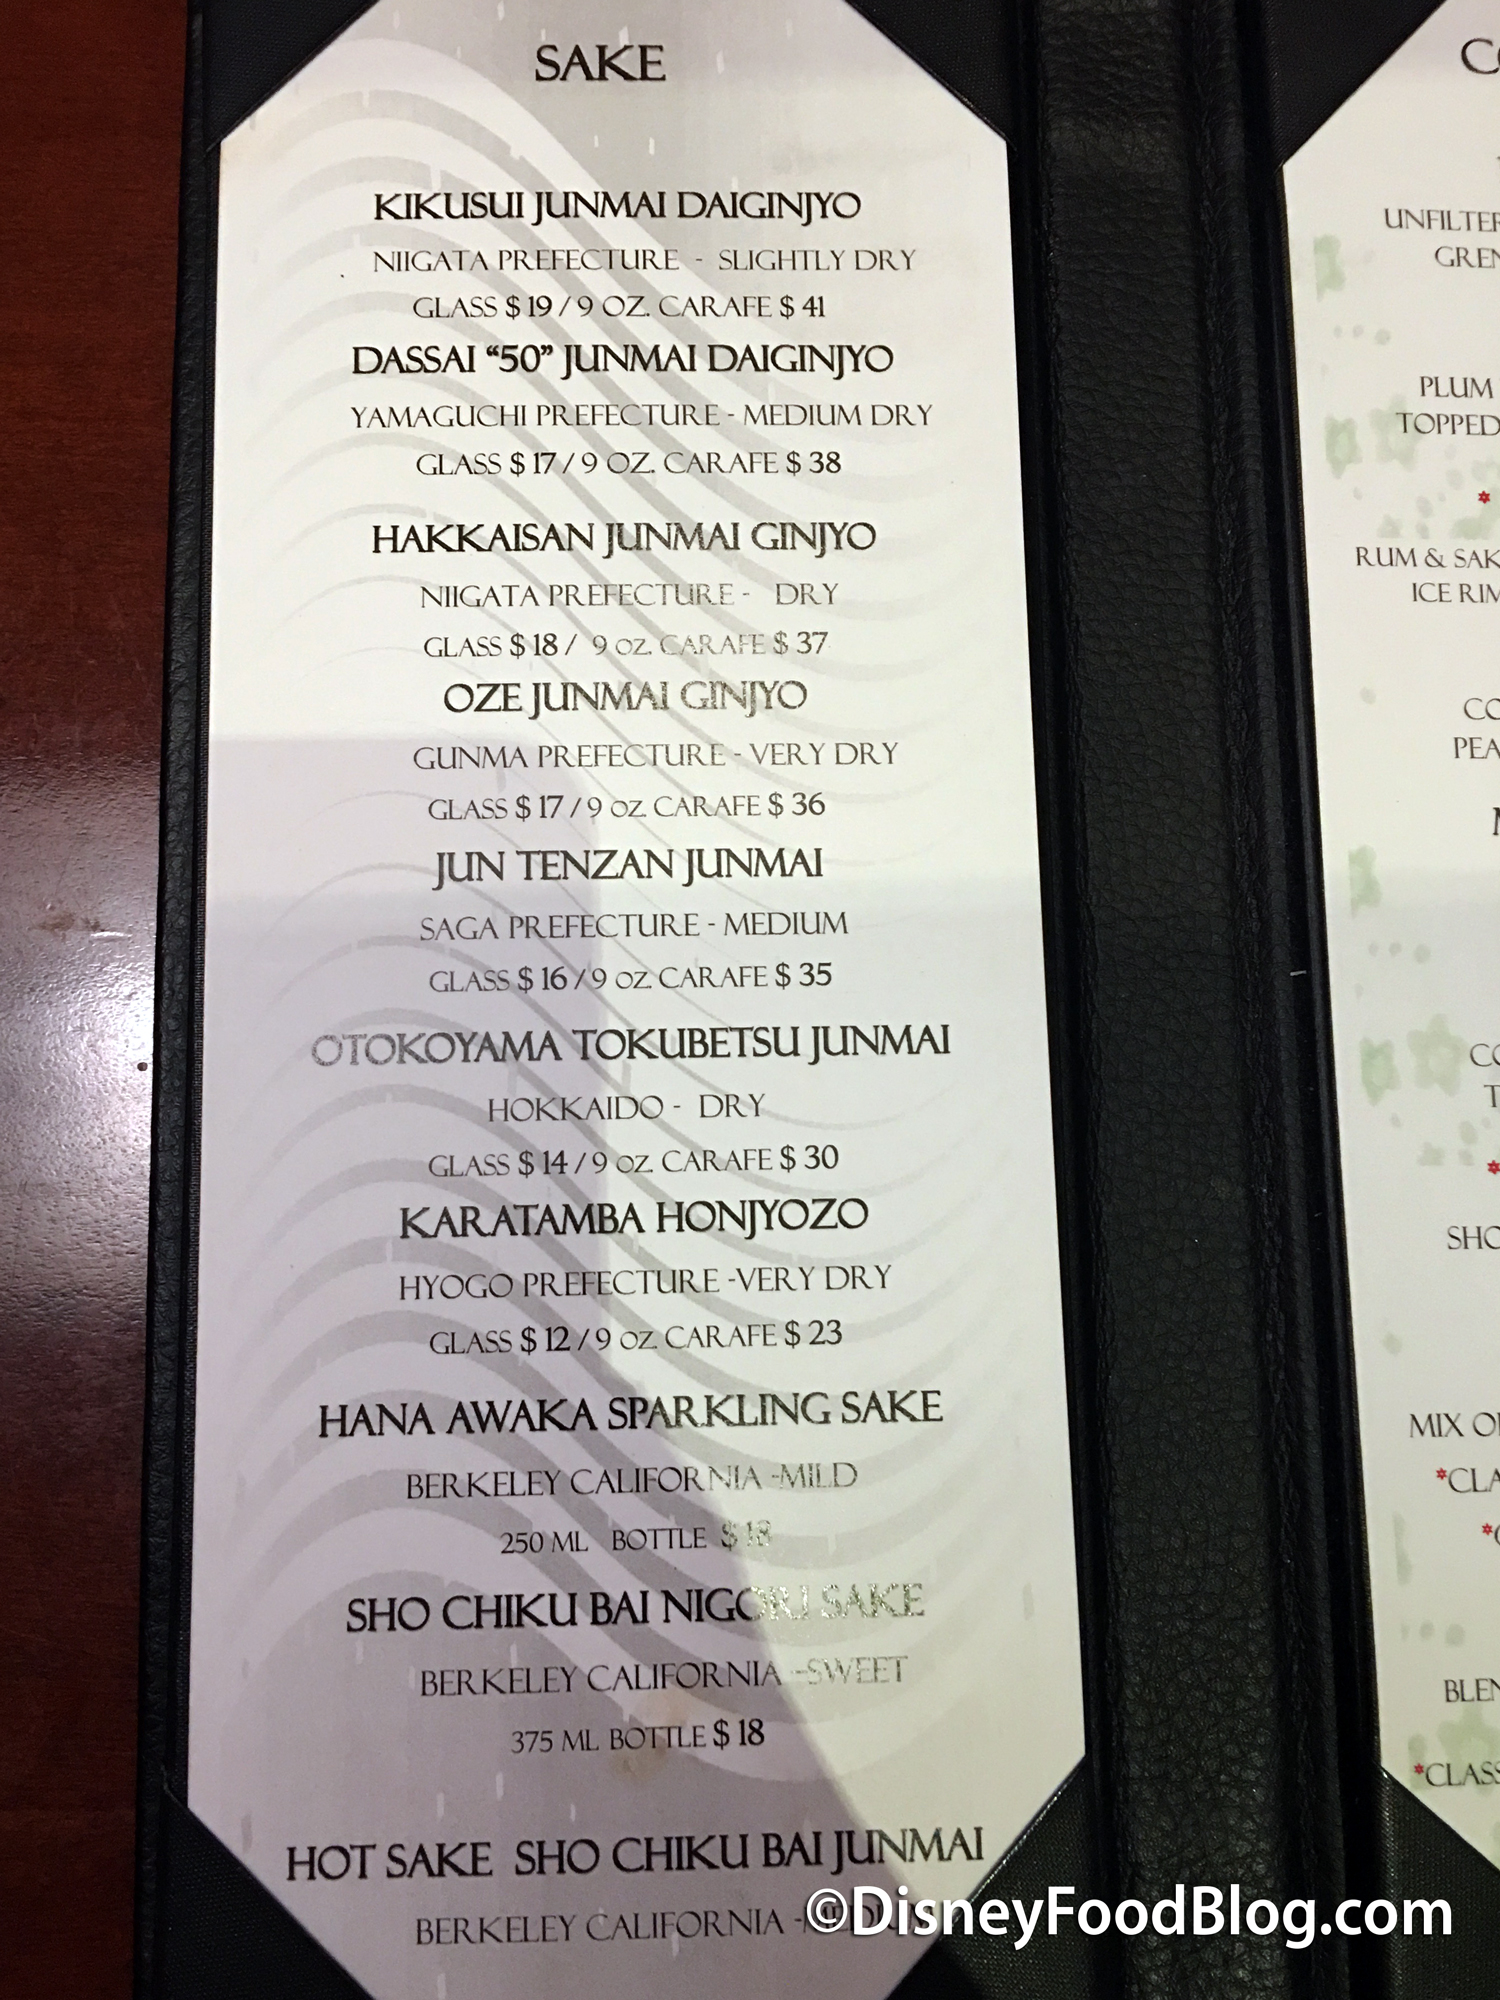 SAKE
KIKUSUI JUNMAI DAIGINJYO
NIIGATA PREFECTURE - SLIGHTLY DRY
GLASS $ 19 / 9 OZ. CARAFE $ 41
DASSAI “50” JUNMAI DAIGINJYO
YAMAGUCHI PREFECTURE - MEDIUM DRY
GLASS $ 17 / 9 OZ. CARAFE $ 38
HAKKAISAN JUNMAI GINJYO
NIIGATA PREFECTURE - DRY
GLASS $ 18 / 9 OZ. CARAFE $ 37
OZE JUNMAI GINJYO
GUNMA PREFECTURE - VERY DRY
GLASS $ 17 / 9 OZ. CARAFE $ 36
JUN TENZAN JUNMAI
SAGA PREFECTURE - MEDIUM
GLASS $ 16 / 9 OZ. CARAFE $ 35
OTOKOYAMA TOKUBETSU JUNMAI
HOKKAIDO - DRY
GLASS $ 14 / 9 OZ. CARAFE $ 30
KARATAMBA HONJYOZO
HYOGO PREFECTURE -VERY DRY
GLASS $ 12 / 9 OZ. CARAFE $ 23
HANA AWAKA SPARKLING SAKE
BERKELEY CALIFORNIA -MILD
250 ML BOTTLE $ 18
SHO CHIKU BAI NIGORI SAKE
BERKELEY CALIFORNIA -SWEET
375 ML BOTTLE $ 18
HOT SAKE SHO CHIKU BAI JUNMAI
BERKELEY CALIFORNIA -
©DisneyFoodBlog.com
PLUM
TOPPED
*
RUM & SAK
ICE RIM
*
SHO
MIX O
*CLA
*
*CLASS